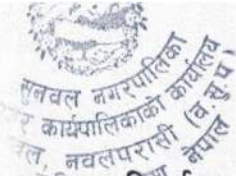 सुनवल नगरपालिका
कार्यपालिकाको कार्यालय
नवलपरासी (ब.सु.प.)
नेपाल